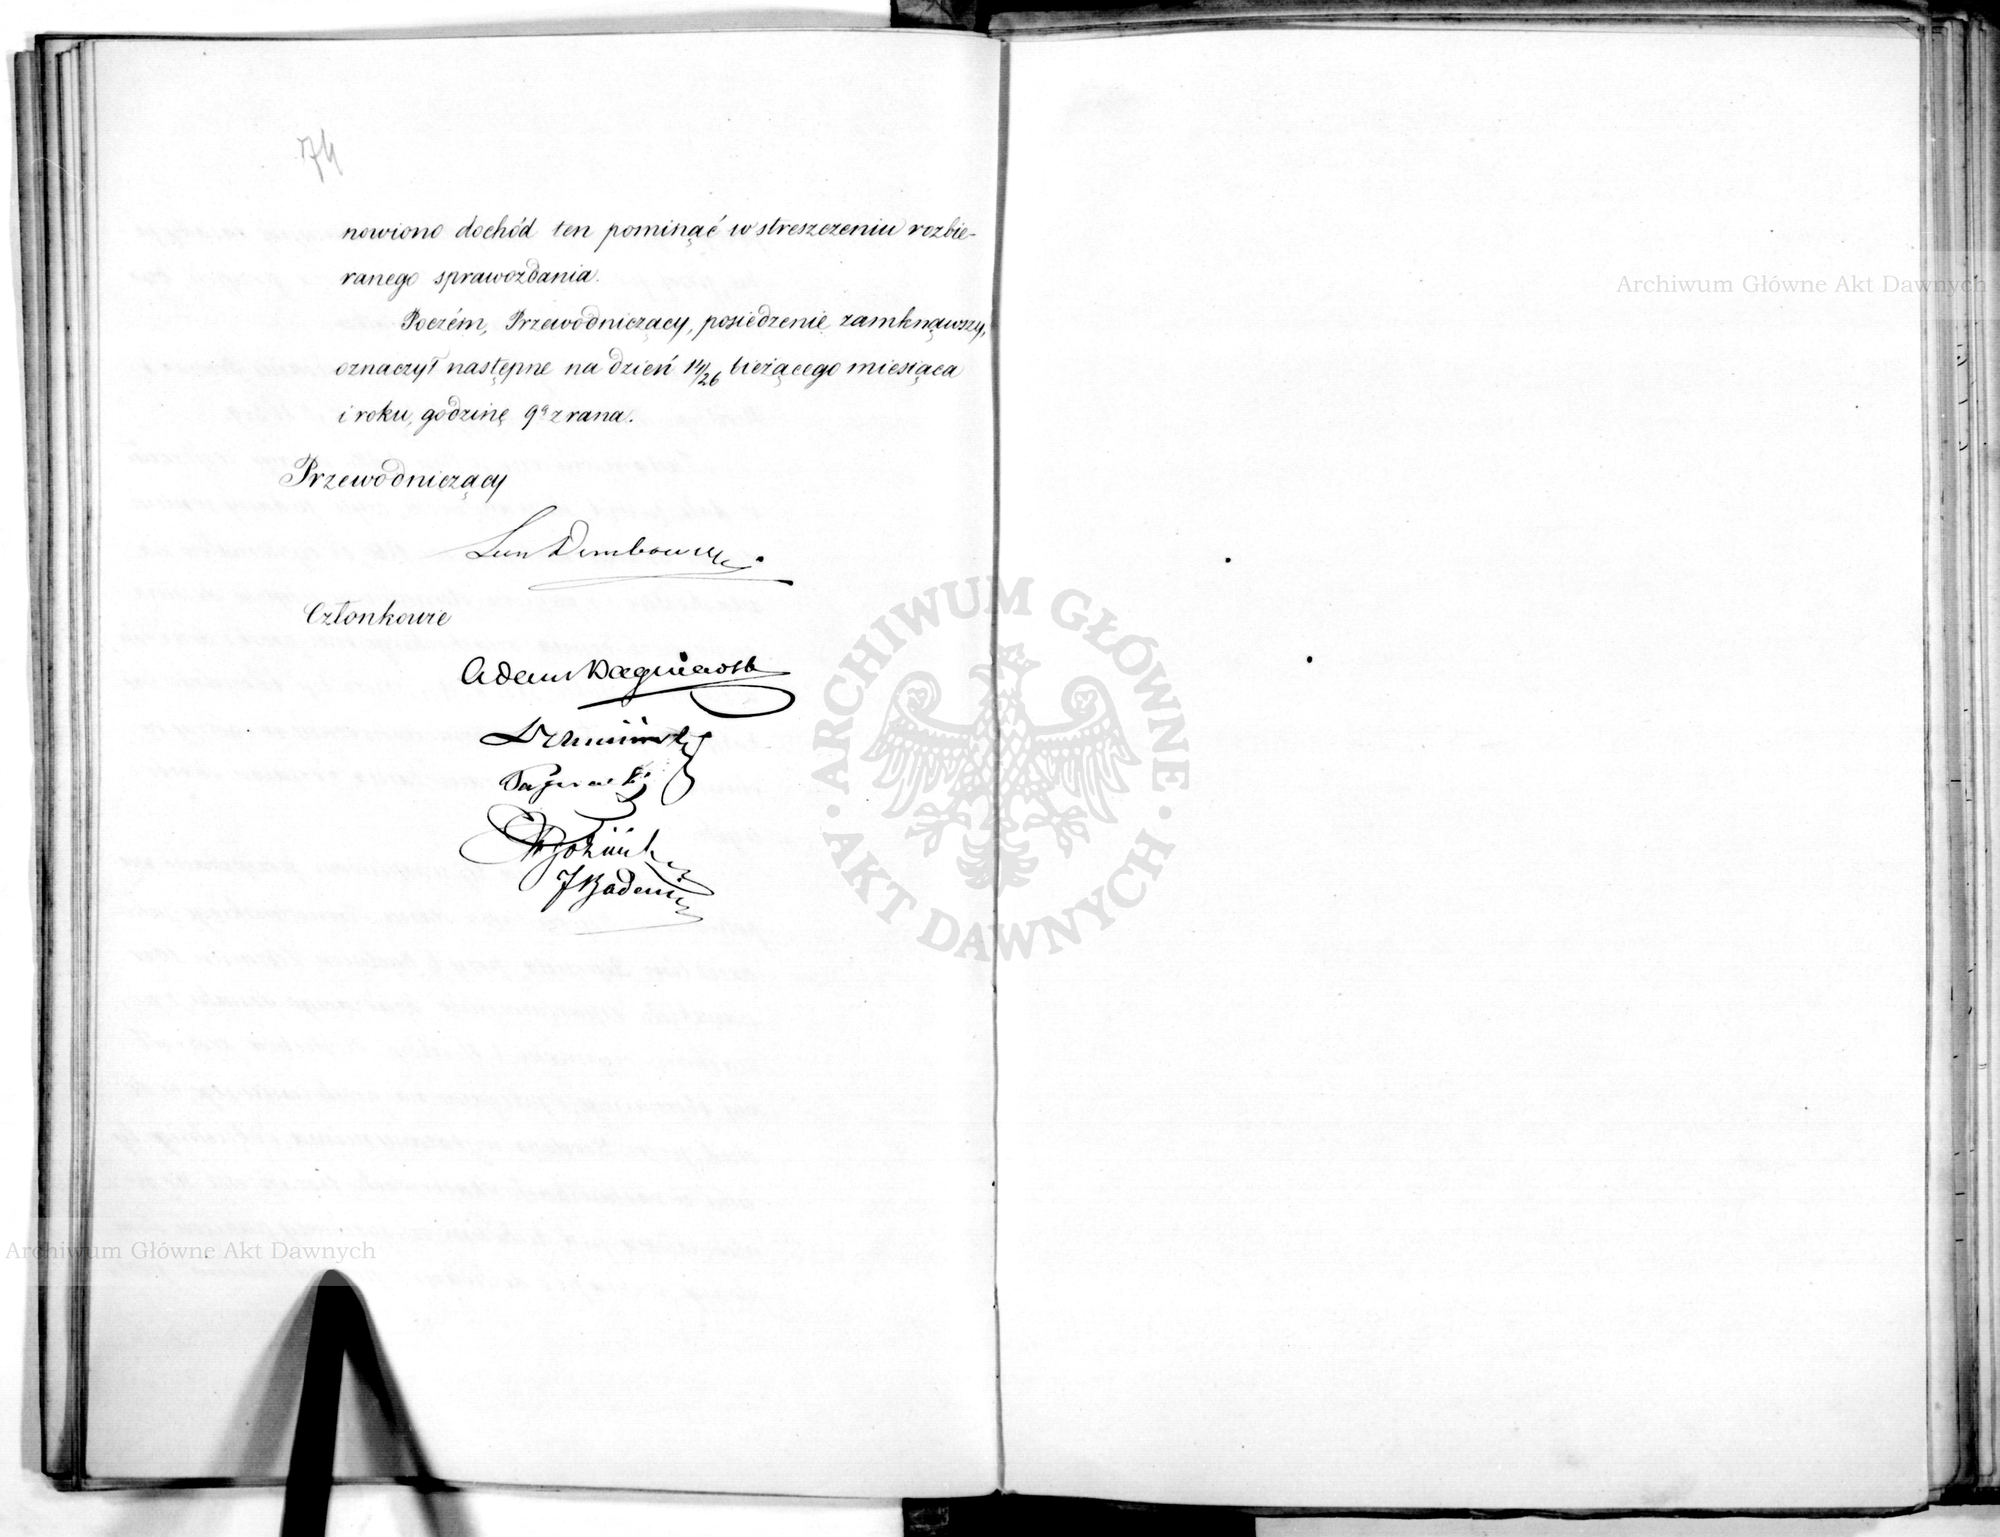 74
nowiono dochód ten pominąć w streszczeniu rozbie-
ranego sprawozdania.
Poczém, Przewodniczący, posiedzenie zamknąwszy,
oznaczył następne na dzień 14/26 bieżącego miesiąca
i roku, godzinę 9ą z rana.
Przewodniczący
Leon Dembowski
Członkowie
Adam
J Badeni
Archiwum Główne Akt Dawnych
Archiwum Główne Akt Dawnych
ARCHIWUM GŁÓWNE
AKT DAWNYCH